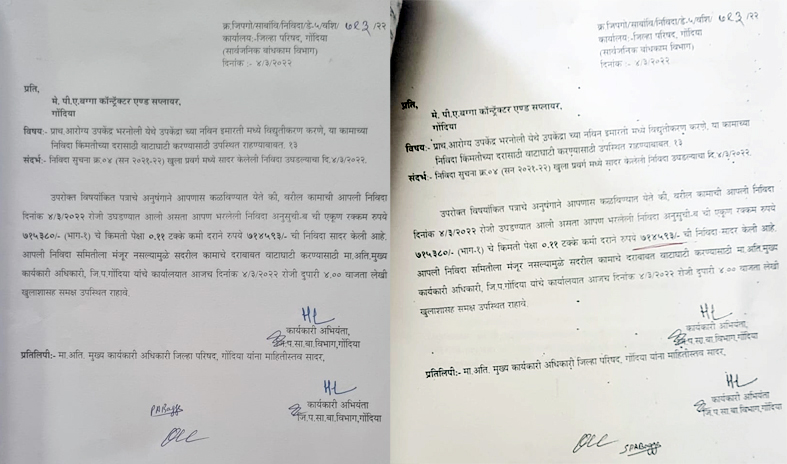 क्र.जिपगो/सार्बांवि/निविदा/डे-५/वशि/७१३/२२
कार्यालय:-जिल्हा परिषद, गोंदिया
(सार्वजनिक बांधकाम विभाग)
दिनांक :- ४/३/२०२२
प्रति,
मे. पी.ए.बग्गा कॉन्ट्रॅक्टर एण्ड सप्लायर,
गोंदिया
विषय:- प्राथ.आरोग्य उपकेंद्र भरनोली येथे उपकेंद्रा च्या नविन इमारती मध्ये विद्युतीकरण करणे, या कामाच्या
निविदा किमतीच्या दरासाठी वाटाघाटी करण्यासाठी उपस्थित राहण्याबाबत. १३
संदर्भ:- निविदा सुचना क्र.०४ (सन २०२१-२२) खुला प्रवर्ग मध्ये सादर केलेली निविदा उघडल्याचा दि.४/३/२०२२.
उपरोक्त विषयांकित पत्राचे अनुषंगाने आपणास कळविण्यात येते की, वरील कामाची आपली निविदा
दिनांक ४/३/२०२२ रोजी उघडण्यात आली असता आपण भरलेली निविदा अनुसुची-ब ची एकुण रक्कम रुपये
७१५३८०/- (भाग-१) चे किमती पेक्षा ०.११ टक्के कमी दराने रुपये ७१४५९३/- ची निविदा सादर केली आहे.
आपली निविदा समितीला मंजूर नसल्यामुळे सदरील कामाचे दराबाबत वाटाघाटी करण्यासाठी मा.अति.मुख्य
कार्यकारी अधिकारी, जि.प.गोंदिया यांचे कार्यालयात आजच दिनांक ४/३/२०२२ रोजी दुपारी ४.०० वाजता लेखी
खुलाशासह समक्ष उपस्थित राहावे.
कार्यकारी अभियंता,
जि.प.सा.बा.विभाग,गोंदिया
प्रतिलिपी:- मा.अति. मुख्य कार्यकारी अधिकारी जिल्हा परिषद, गोंदिया यांना माहितीस्तव सादर,
कार्यकारी अभियंता
जि.प.सा.बा.विभाग,गोंदिया
क्र.जिपगो/सार्बांवि/निविदा/डे-५/वशि/७१३/२२
कार्यालय:-जिल्हा परिषद, गोंदिया
(सार्वजनिक बांधकाम विभाग)
दिनांक :- ४/३/२०२२
प्रति,
मे. पी.ए.बग्गा कॉन्ट्रॅक्टर एण्ड सप्लायर,
गोंदिया
विषय:- प्राथ.आरोग्य उपकेंद्र भरनोली येथे उपकेंद्रा च्या नविन इमारती मध्ये विद्युतीकरण करणे, या कामाच्या
निविदा किमतीच्या दरासाठी वाटाघाटी करण्यासाठी उपस्थित राहण्याबाबत. १३
संदर्भ:- निविदा सुचना क्र.०४ (सन २०२१-२२) खुला प्रवर्ग मध्ये सादर केलेली निविदा उघडल्याचा दि.४/३/२०२२.
उपरोक्त विषयांकित पत्राचे अनुषंगाने आपणास कळविण्यात येते की, वरील कामाची आपली निविदा
दिनांक ४/३/२०२२ रोजी उघडण्यात आली असता आपण भरलेली निविदा अनुसुची-ब ची एकुण रक्कम रुपये
७१५३८०/- (भाग-१) चे किमती पेक्षा ०.११ टक्के कमी दराने रुपये ७१४५९३/- ची निविदा सादर केली आहे.
आपली निविदा समितीला मंजूर नसल्यामुळे सदरील कामाचे दराबाबत वाटाघाटी करण्यासाठी मा.अति.मुख्य
कार्यकारी अधिकारी, जि.प.गोंदिया यांचे कार्यालयात आजच दिनांक ४/३/२०२२ रोजी दुपारी ४.०० वाजता लेखी
खुलाशासह समक्ष उपस्थित राहावे.
कार्यकारी अभियंता,
जि.प.सा.बा.विभाग,गोंदिया
प्रतिलिपी:- मा.अति. मुख्य कार्यकारी अधिकारी जिल्हा परिषद, गोंदिया यांना माहितीस्तव सादर,
कार्यकारी अभियंता
जि.प.सा.बा.विभाग,गोंदिया